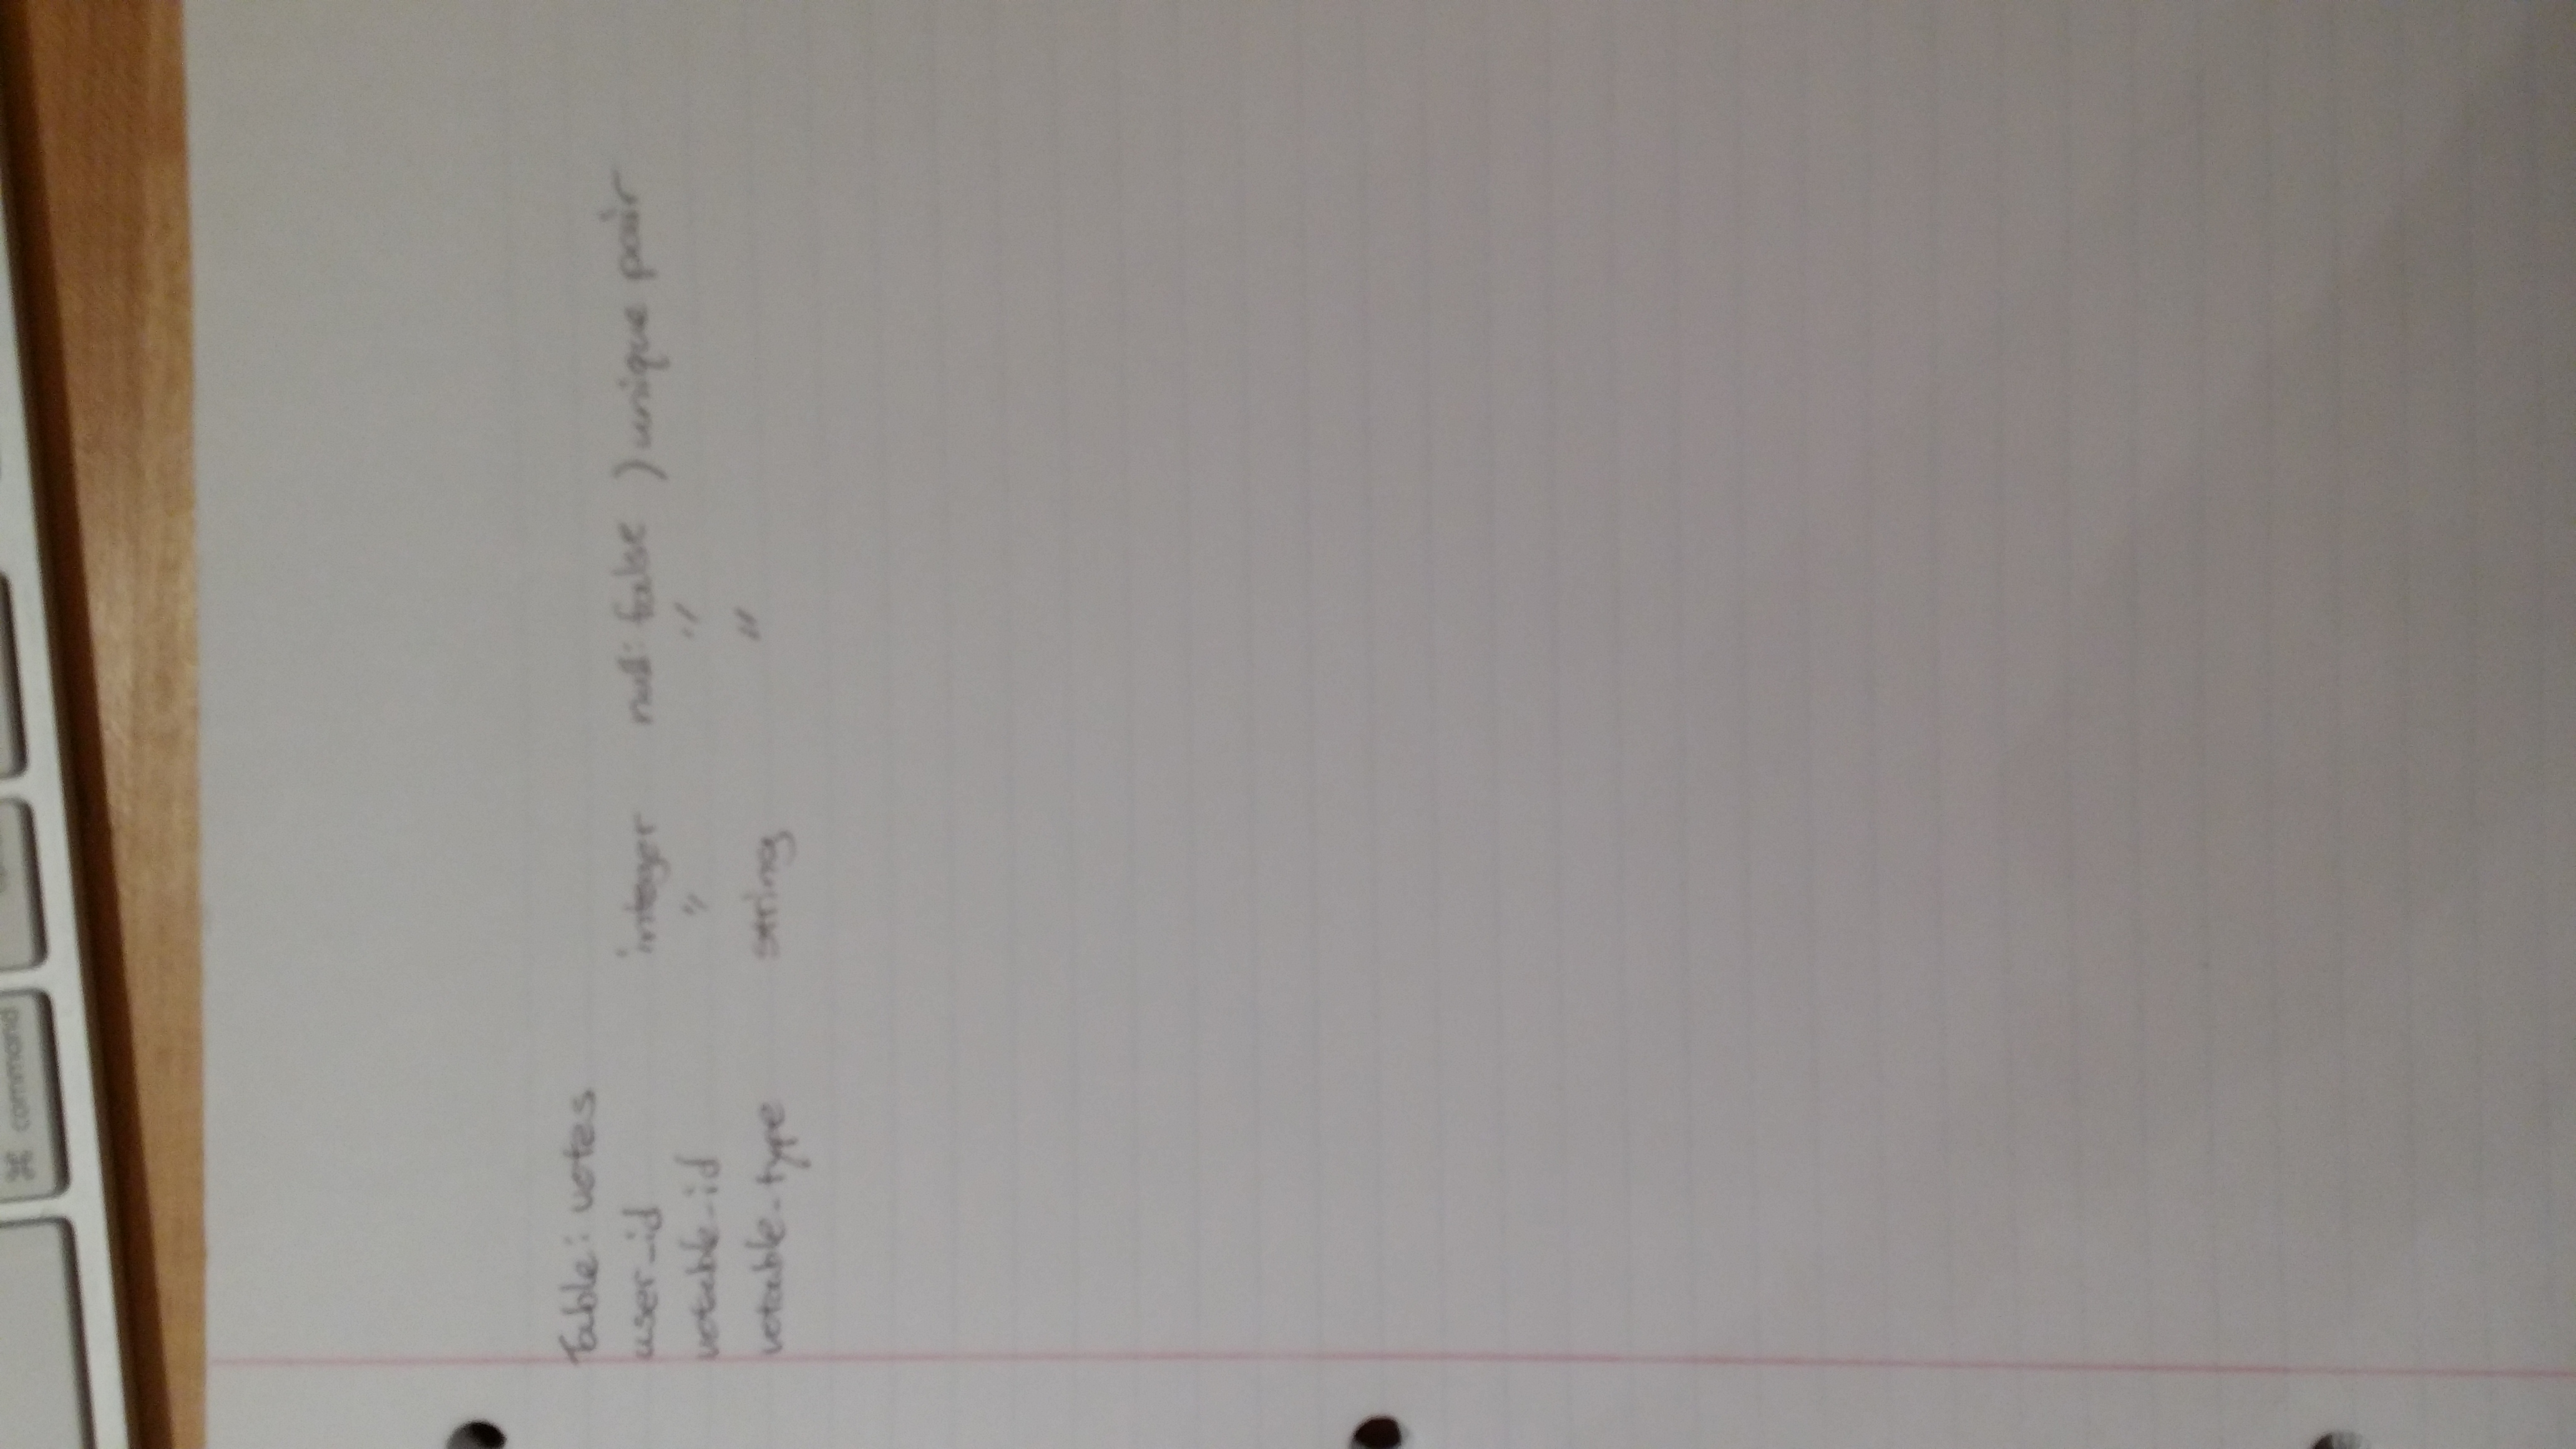 ⌘ command
Table: votes
user_id integer null: false ) unique pair
votable_id " "
votable_type string "